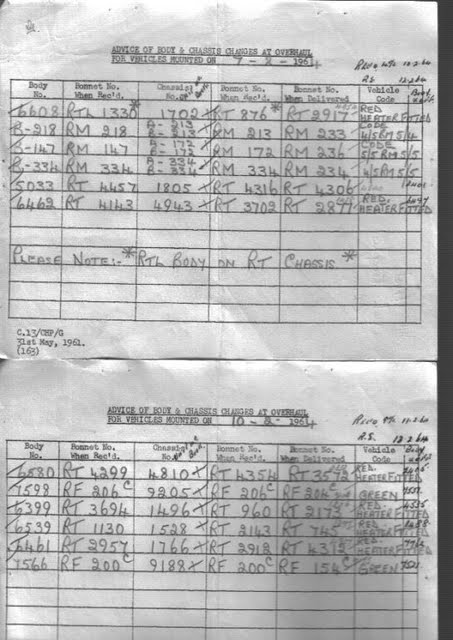 ADVICE OF BODY & CHASSIS CHANGES AT OVERHAUL
FOR VEHICLES MOUNTED ON 7-2-1964
12.2.64
Body No. Bonnet No. When Rec'd. Chassis No. Bonnet No. When Rec'd. Bonnet No. When Delivered Vehicle Code
6608 RTL 1330* 1702 RT 876* RT 2917 RED HEATER FITTED
B-218 RM 218 A-213 B-213 RM 213 RM 233 CODE 4/5RM5/4
B-147 RM 147 A-172 B-172 RM 172 RM 236 CODE 5/5RM5/5
B-334 RM 334 A-334 B-334 RM 334 RM 234 4/5RM5/5
5033 RT 4457 1805 RT 4316 RT 4306
6462 RT 4143 4943 RT 3702 RT 2877 RED. HEATER FITTED
PLEASE NOTE:-* RTL BODY ON RT CHASSIS*
C.13/CHP/G
31st May, 1961.
(163)
ADVICE OF BODY & CHASSIS CHANGES AT OVERHAUL
FOR VEHICLES MOUNTED ON 10-2-1964
12.2.64
Body No. Bonnet No. When Rec'd. Chassis No. Bonnet No. When Rec'd. Bonnet No. When Delivered Vehicle Code
6580 RT 4299 4810 RT 4354 RT 3572 RED. HEATER FITTED
7598 RF 206C 9205 RF 206C RF 204 GREEN
6399 RT 3694 1496 RT 960 RT 2173 RED HEATER FITTED
6539 RT 1130 1528 RT 2143 RT 745 RED HEATER FITTED
6461 RT 2957 1766 RT 2912 RT 4372 RED HEATER FITTED
7566 RF 200C 9188 RF 200C RF 154C GREEN